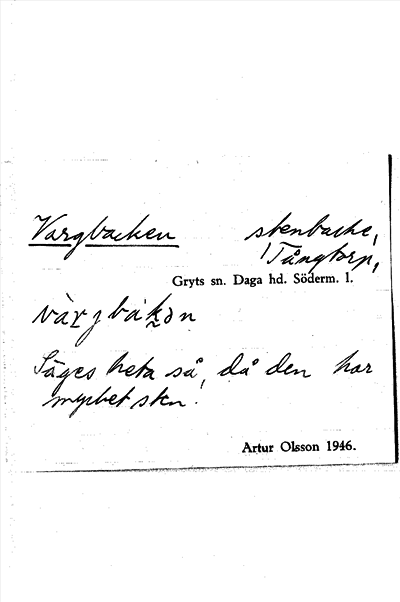 Vargbacken stenbacke,
Tångtorp,
Gryts sn. Daga hd. Söderm. l.
vàrgbàkən
Säges heta så, då den har
mycket sten.
Artur Olsson 1946.